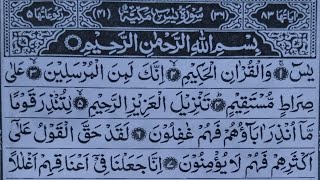 اٰیاتها ۸۳ (۳۶) سُوْرَةُ یٰسٓ مَكِّیَّةٌ (۴۱) رکوعاتها ۵
بِسْمِ اللّٰهِ الرَّحْمٰنِ الرَّحِیْمِ
یٰسٓ ۚ۱ وَالْقُرْاٰنِ الْحَكِیْمِ ۙ۲ اِنَّكَ لَمِنَ الْمُرْسَلِیْنَ ۙ۳ عَلٰی
صِرَاطٍ مُّسْتَقِیْمٍ ؕ۴ تَنْزِیْلَ الْعَزِیْزِ الرَّحِیْمِ ۙ۵ لِتُنْذِرَ قَوْمًا
مَّاۤ اُنْذِرَ اٰبَآؤُهُمْ فَهُمْ غٰفِلُوْنَ ۶ لَقَدْ حَقَّ الْقَوْلُ عَلٰۤی
اَكْثَرِهِمْ فَهُمْ لَا یُؤْمِنُوْنَ ۷ اِنَّا جَعَلْنَا فِیْۤ اَعْنَاقِهِمْ اَغْلٰلًا